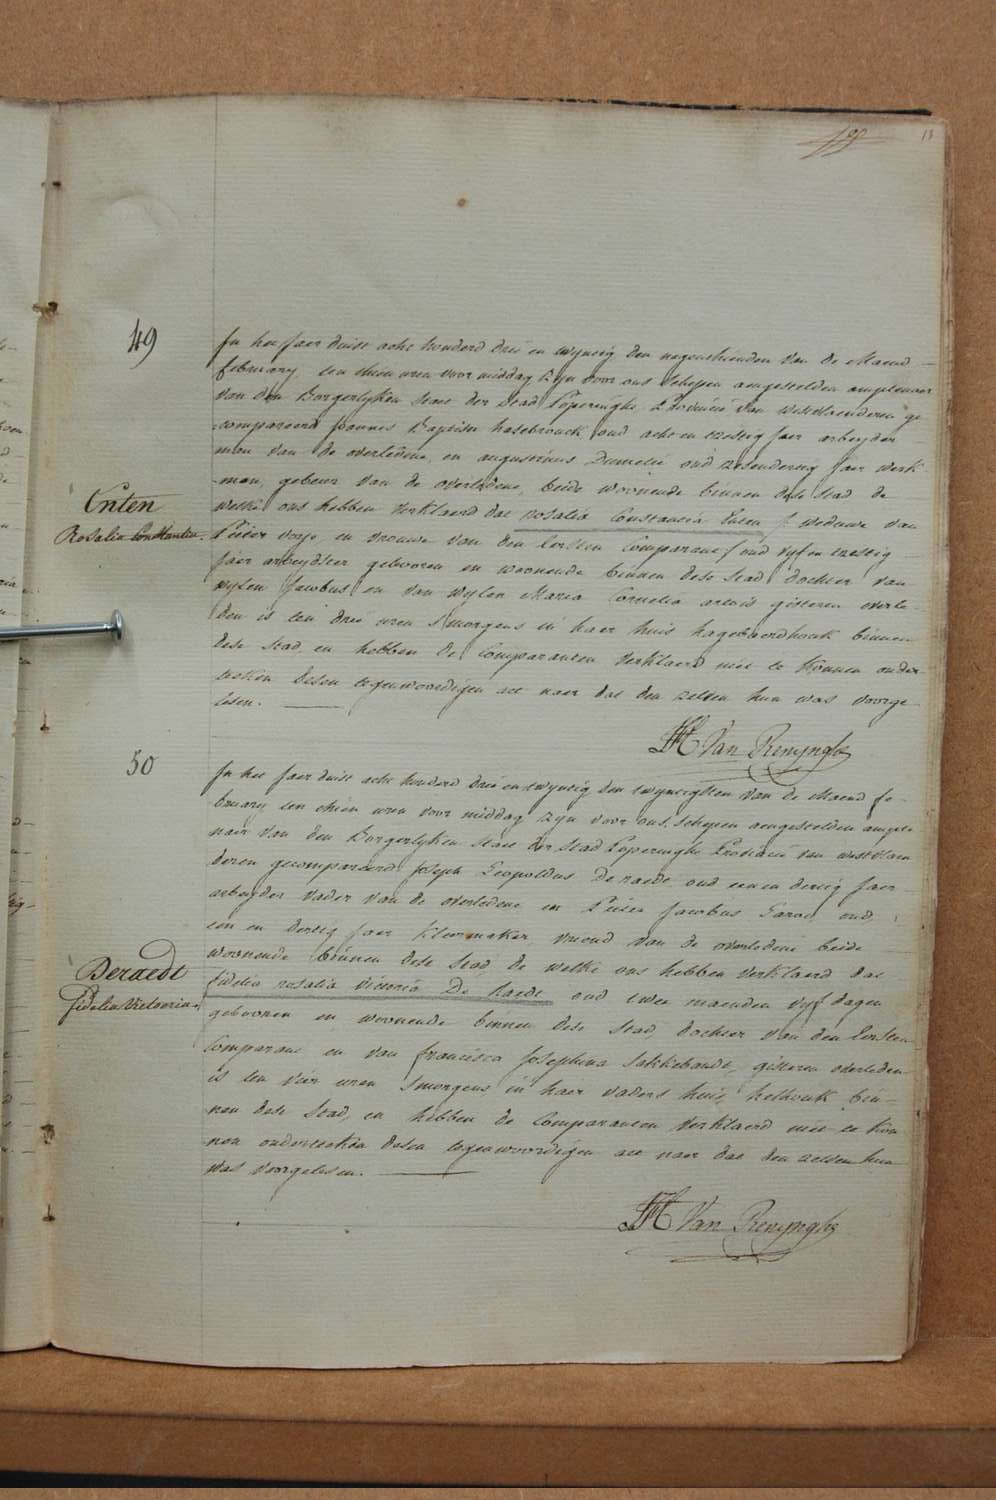 13
49
In het Jaer duist acht honderd drie en twyntig den negenthienden van de Maend
february, ten thien uren voor middag zyn voor ons schepen aengestelden amptenaer
van den Borgerlyken staet der stad Poperinghe, Provincie van Westvlaenderen ge
compareerd Joannes Baptiste hasebrouck, oud acht en tzestig Jaer arbeyder
man van de overledene, en augustinus oud zesendertig Jaer werk
man, gebeur van de overledene, beide woonende binnen dese stad de
Enten
Rosalia Constantia.
welke ons hebben verklaerd dat rosalia Constantia Enten weduwe van
Pieter en vrouwe van den Eersten Comparant oud vyf en tzestig
Jaer arbeydster gebooren en woonende binnen dese stad, dochter van
wylen Jacobus en van wylen Maria Cornelia artois gisteren overle
den is ten drie uren s'morgens in haer huis binnen
dese stad, en hebben de Comparanten verklaerd niet te konnen onder
teeken desen tegenwoordigen act naer dat den zelven hun was voorge
lesen.
Van Renynghe
50
In het Jaer duist acht honderd drie en twyntig den twyntigsten van de Maend fe-
bruary ten thien uren voor middag zyn voor ons schepen aengestelden ampte
naer van den Borgerlyken staet der stad Poperinghe Provincie van westvlaen
deren gecompareerd Joseph Leopoldus De raedt oud een en dertig Jaer
arbeyder vader van de overledene en Pieter Jacobus oud
een en dertig Jaer kleermaker, vriend van de overledene beide
Deraedt
fidelia Victoria
woonende binnen dese stad, de welke ons hebben verklaerd dat
fidelia rosalia Victoria De Raedt oud twee maenden vyf dagen
gebooren en woonende binnen dese stad, dochter van den Eersten
Comparant en van francisca Josephina gisteren overleden
is ten vier uren s'morgens in haer vaders huis bin-
nen dese stad, en hebben de Comparanten verklaerd niet te kon
nen onderteeken desen tegenwoordigen act naer dat den zelven hun
was voorgelesen.
Van Renynghe